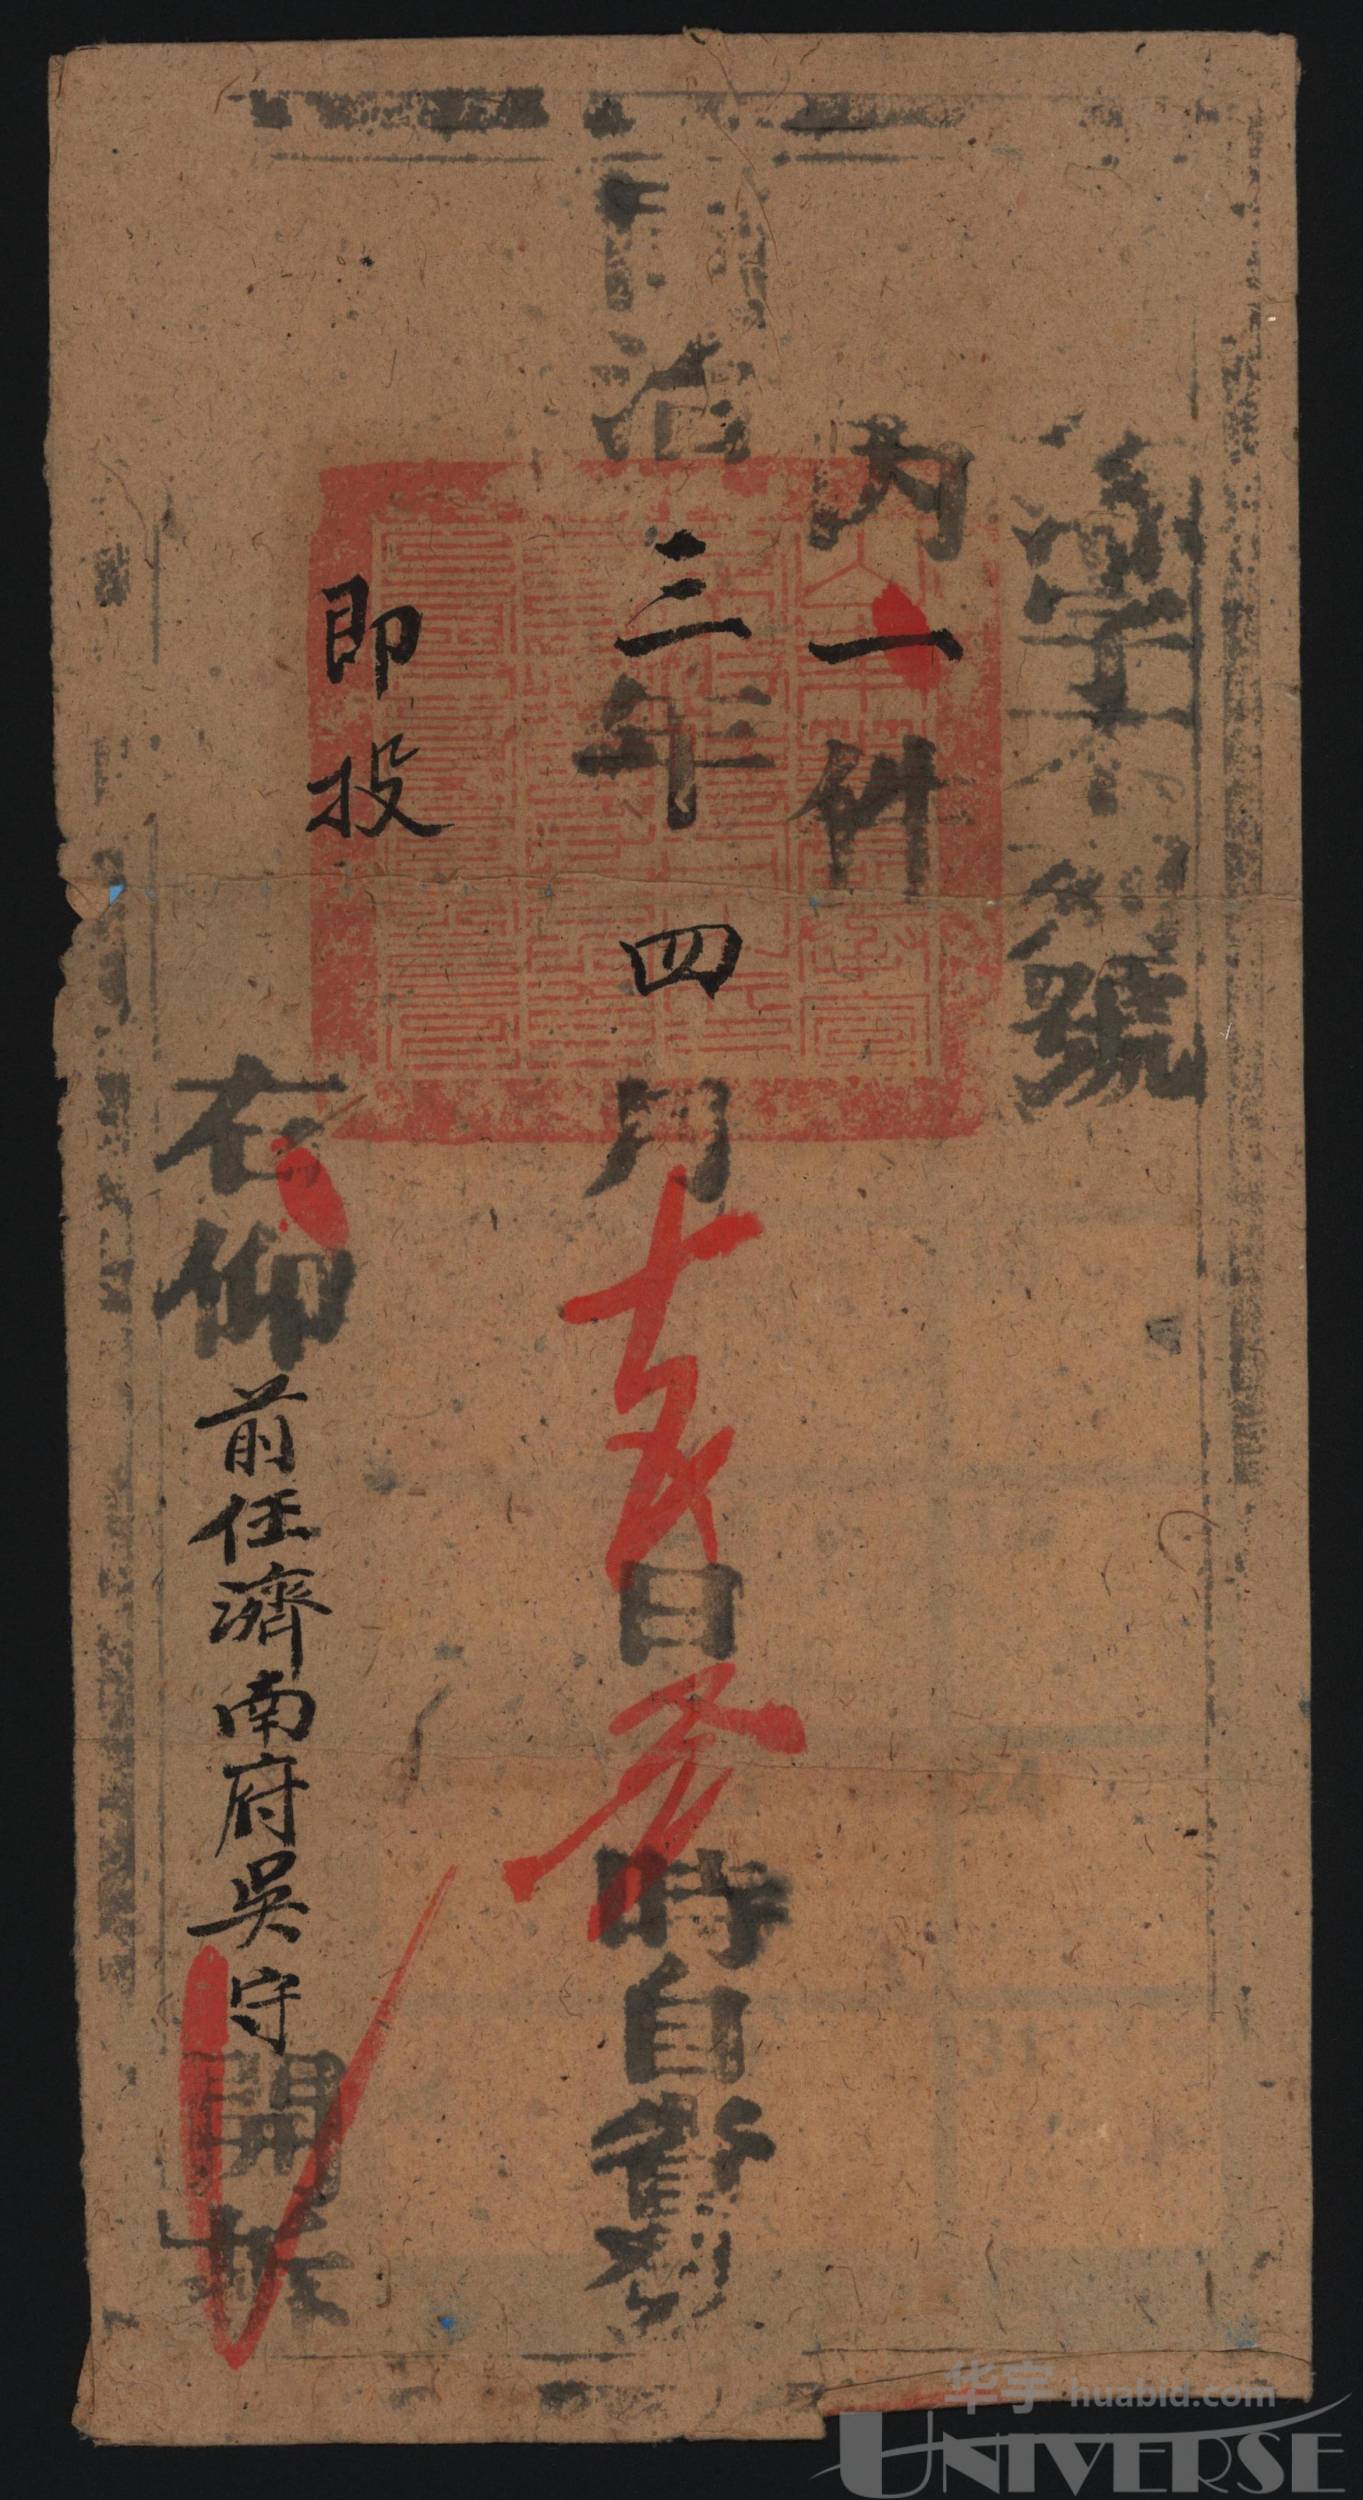 字 號
內一件
同治三年四月十五日 時自省發
即投
右仰前任濟南府吳守開拆
24
31
华宇 huabid.com
UNIVERSE